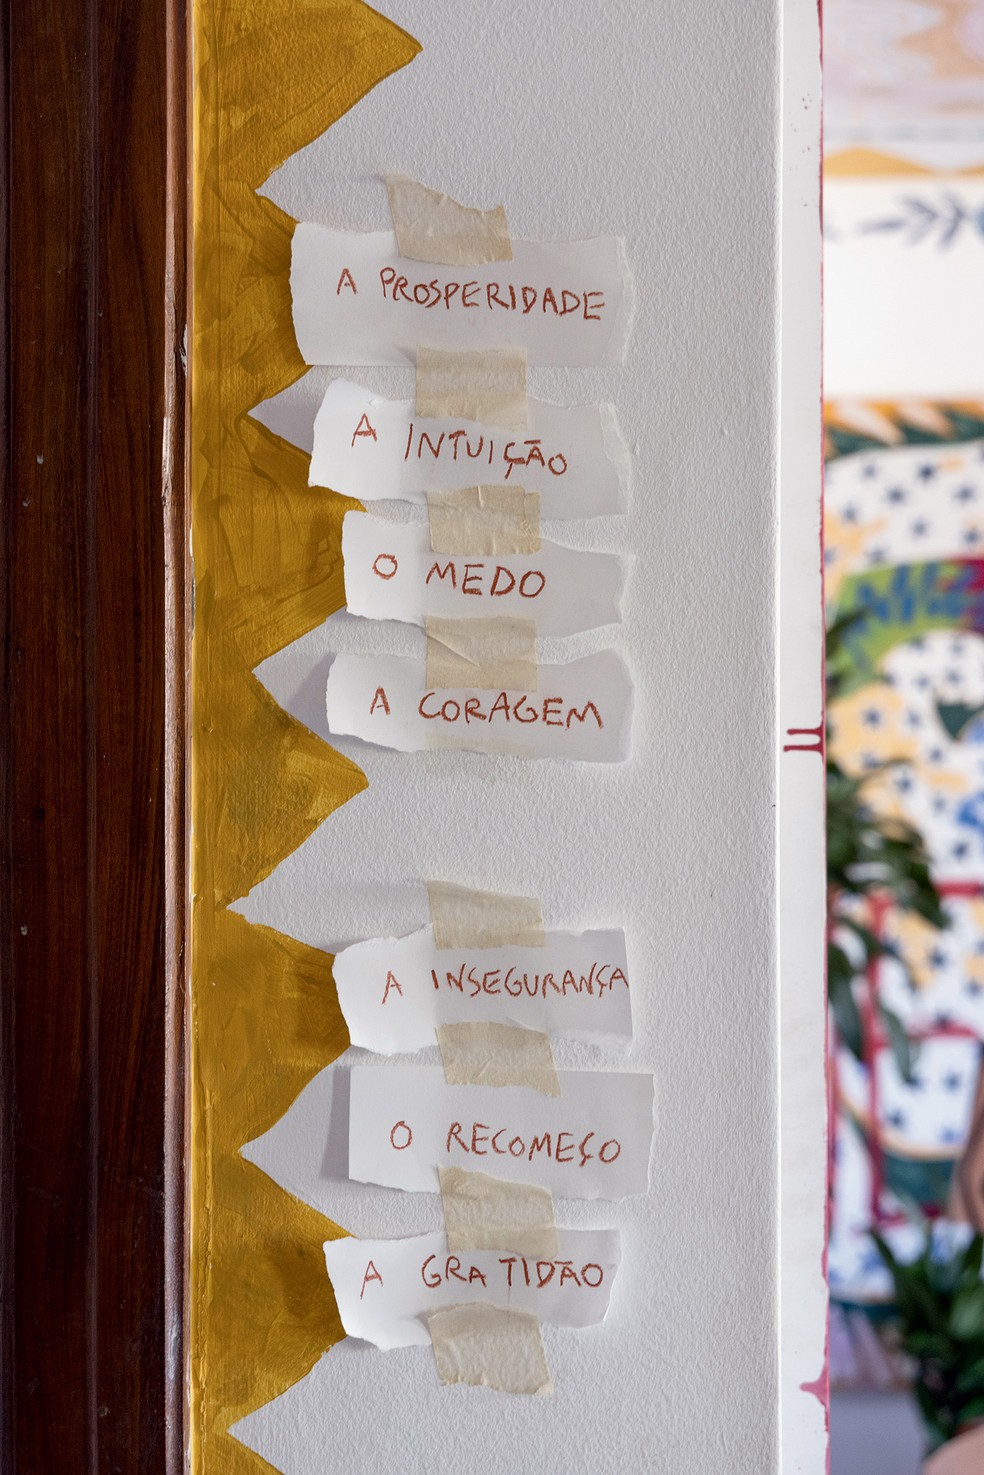 A PROSPERIDADE
A INTUIÇÃO
O MEDO
A CORAGEM
A INSEGURANÇA
O RECOMEÇO
A GRATIDÃO